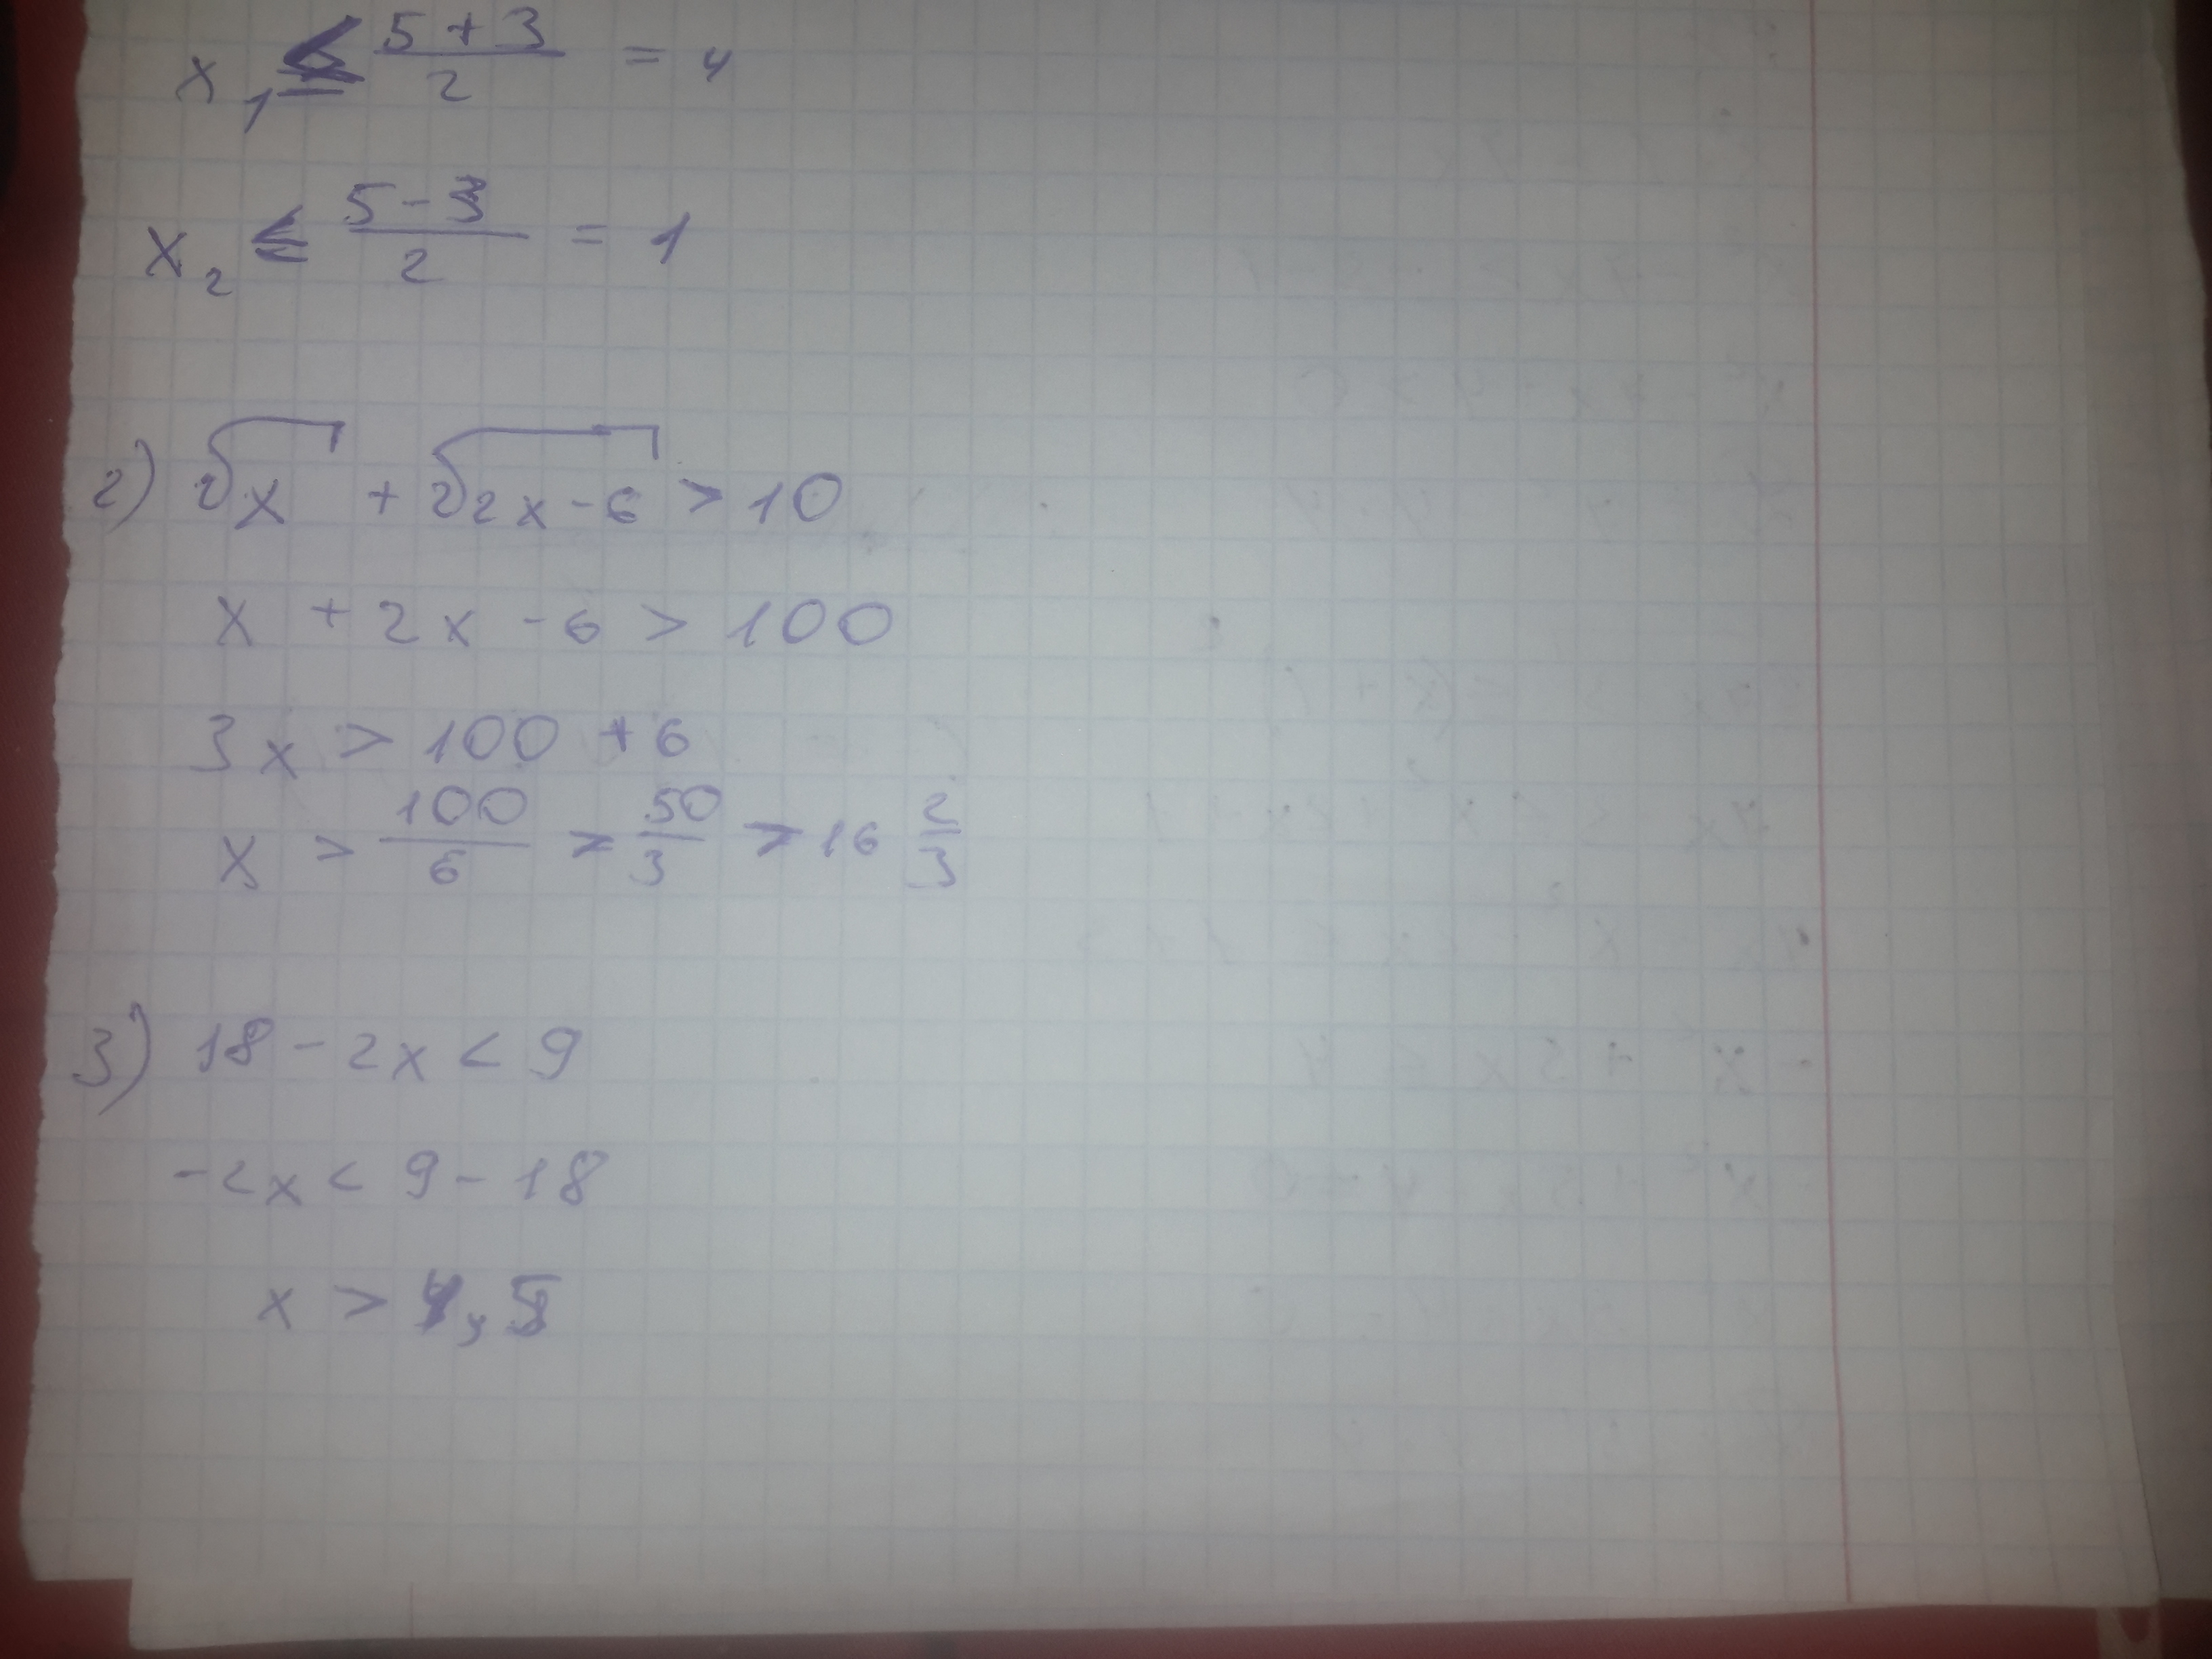 x₁ ≤ (5 + 3)/2 = 4
x₂ ≤ (5 - 3)/2 = 1
2) ²√x + ²√2x - 6 > 10
x + 2x - 6 > 100
3x > 100 + 6
x > 100/6 > 50/3 > 16 2/3
3) 18 - 2x < 9
-2x < 9 - 18
x > 4,5